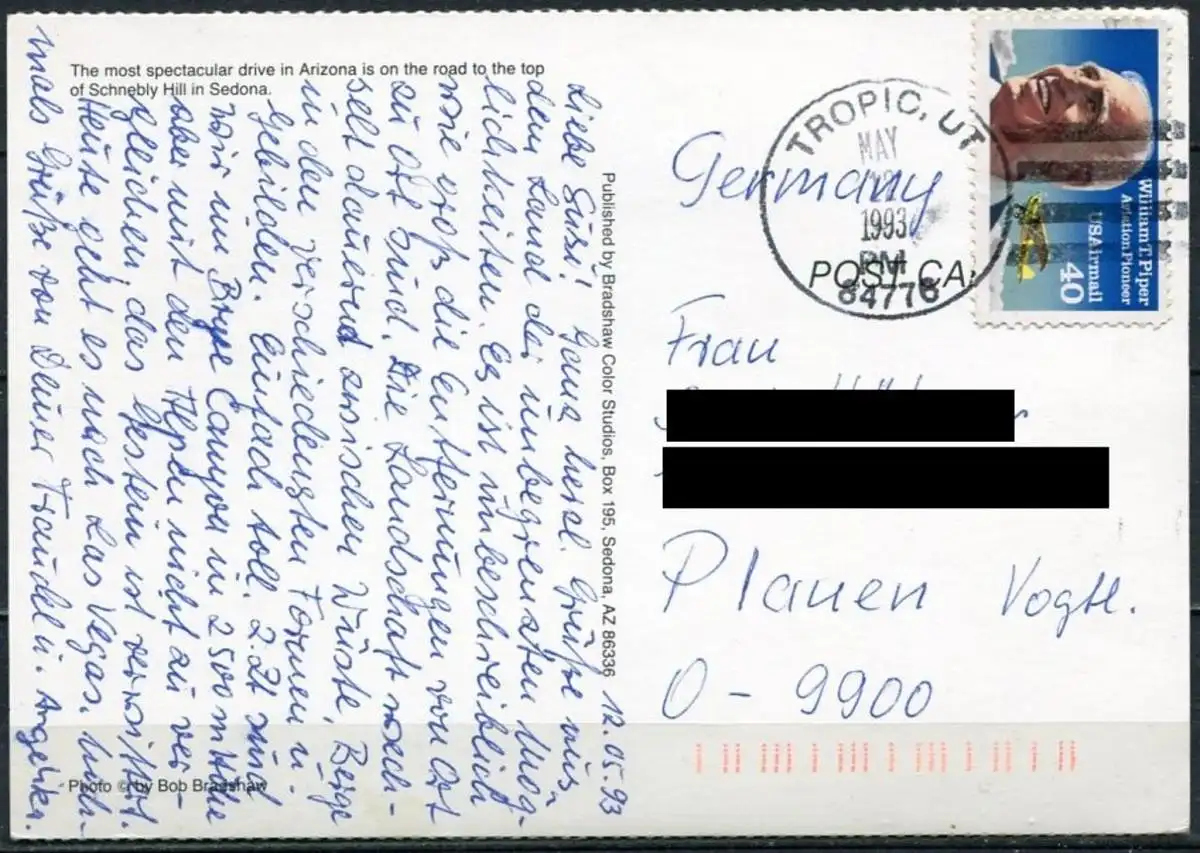 The most spectacular drive in Arizona is on the road to the top
of Schnebly Hill in Sedona.
12.05.93
Liebe Susi! Ganz herzl. Grüße aus
dem Land der unbegrenzten Mög-
lichkeiten. Es ist unbeschreiblich
wie groß die Entfernungen von Ort
zu Ort sind. Die Landschaft wech-
selt dauernd zwischen Wüste, Berge
in den verschiedensten Formen u.
Gebilden. Einfach toll. Z. Zt sind
wir im Bryce Canyon in 2500 m Höhe
aber mit den Alpen nicht zu ver-
gleichen, das gestein ist verwittert.
Heute geht es nach Las Vegas. Noch-
mals Grüße von Deiner Traudel u. Angelika.
Photo © by Bob Bradshaw
Published by Bradshaw Color Studios, Box 195, Sedona, AZ 86336
POST CA
TROPIC, UT
MAY
12
1993
PM
84776
William T. Piper
Aviation Pioneer
USAirmail
40
Germany
Frau
Plauen Vogtl.
O - 9900